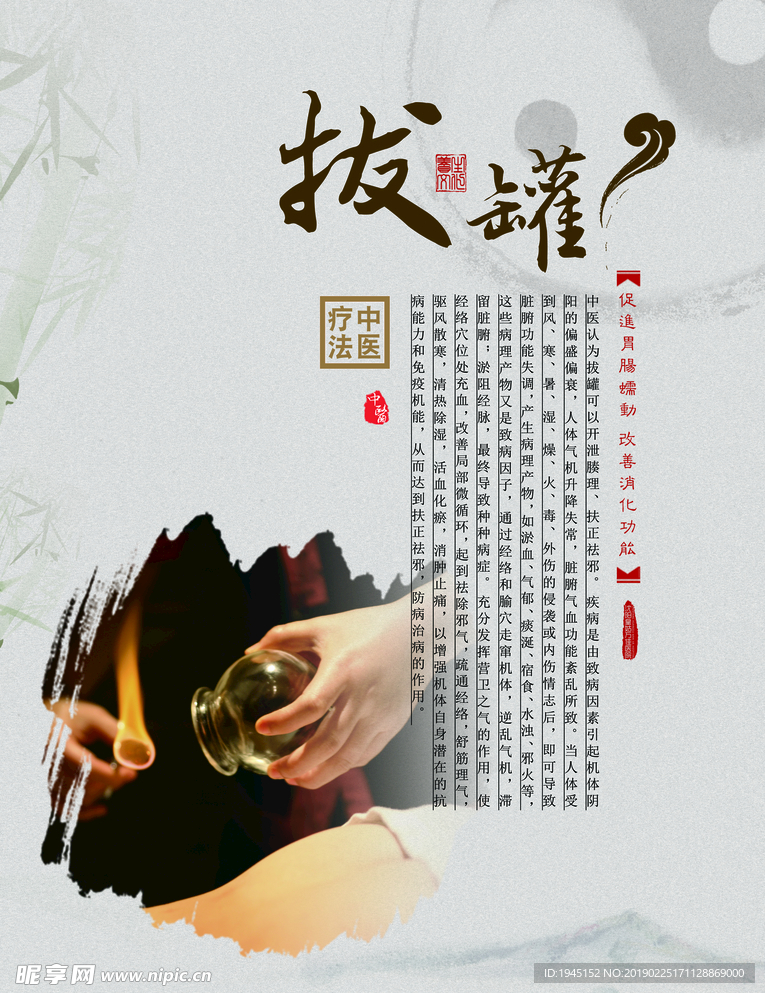 拔罐
養生文化
促進胃腸蠕動 改善消化功能
中医认为拔罐可以开泄腠理、扶正祛邪。疾病是由致病因素引起机体阴
阳的偏盛偏衰，人体气机升降失常，脏腑气血功能紊乱所致。当人体受
到风、寒、暑、湿、燥、火、毒、外伤的侵袭或内伤情志后，即可导致
脏腑功能失调，产生病理产物，如淤血、气郁、痰涎、宿食、水浊、邪火等，
这些病理产物又是致病因子，通过经络和腧穴走窜机体，逆乱气机，滞
留脏腑；淤阻经脉，最终导致种种病症。充分发挥营卫之气的作用，使
经络穴位处充血，改善局部微循环，起到祛除邪气，疏通经络，舒筋理气，
驱风散寒，清热除湿，活血化瘀，消肿止痛，以增强机体自身潜在的抗
病能力和免疫机能，从而达到扶正祛邪，防病治病的作用。
中医
疗法
中醫
昵享网 www.nipic.cn
ID:1945152 NO:20190225171128869000